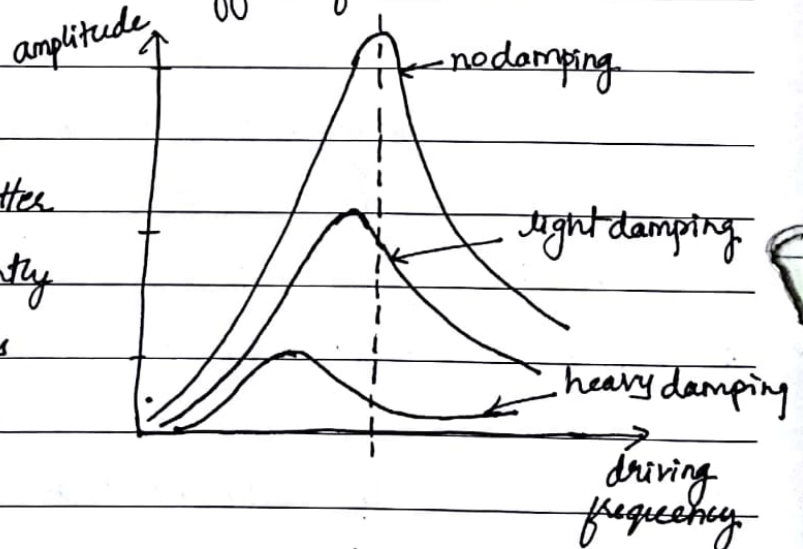 amplitude
no damping
light damping
heavy damping
driving
frequency